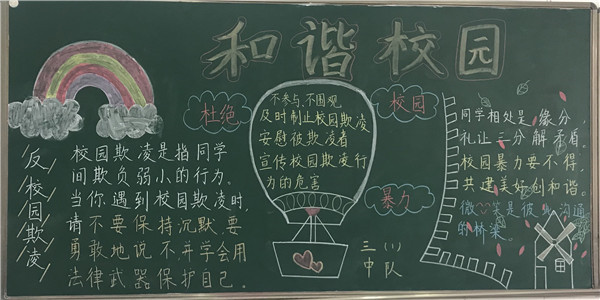 和谐校园
反校园欺凌
校园欺凌是指同学
间欺负弱小的行为。
当你遇到校园欺凌时,
请不要保持沉默,要
勇敢地说不,并学会用
法律武器保护自己。
杜绝
不参与、不围观
及时制止校园欺凌
安慰被欺凌者
宣传校园欺凌行
为的危害
校园
暴力
三(1)
中队
同学相处是缘分,
礼让三分解矛盾。
校园暴力要不得,
共建美好创和谐。
微笑是彼此沟通
的桥梁。